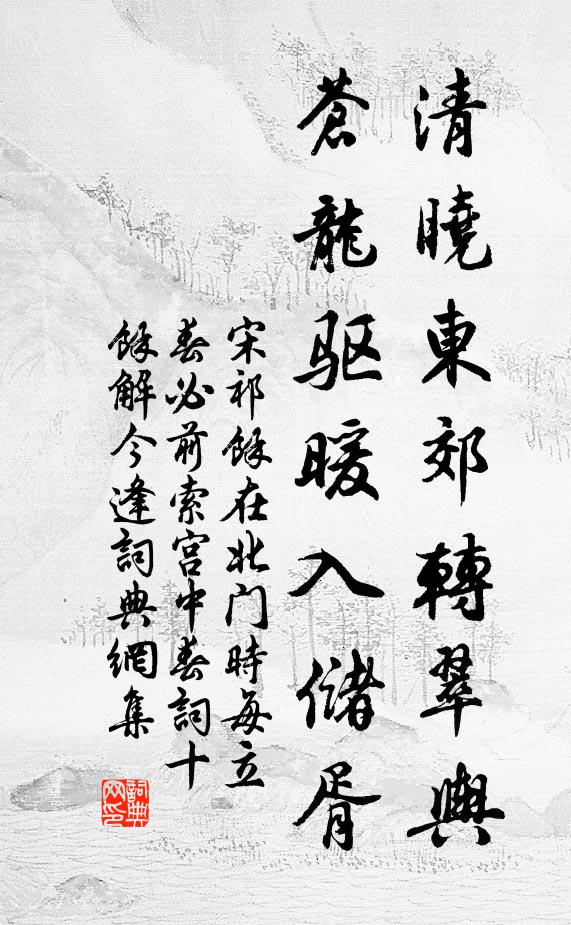 清曉東郊轉翠輿
蒼龍驱暖入儲胥
宋祁餘在北门時每立
春必前索宮中春詞十
餘解今逢詞典網集
詞典网印